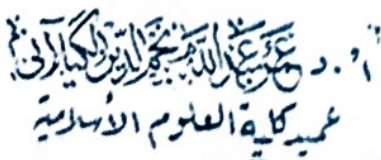 أ.د عمر عبد الله نجم الدين الكيلاني
عميد كلية العلوم الأسلامية